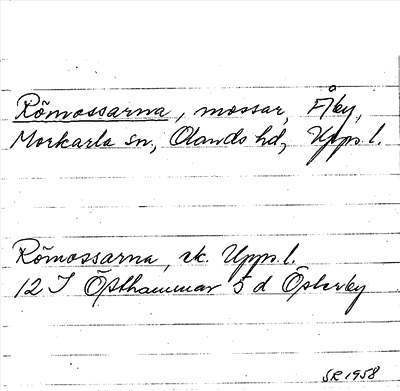 Römossarna, mossar, Åby,
Morkarla sn, Olands hd, Upps. l.
Römossarna, ek. Upps. l.
12 I Östhammar 5 d Österby
SR 1958